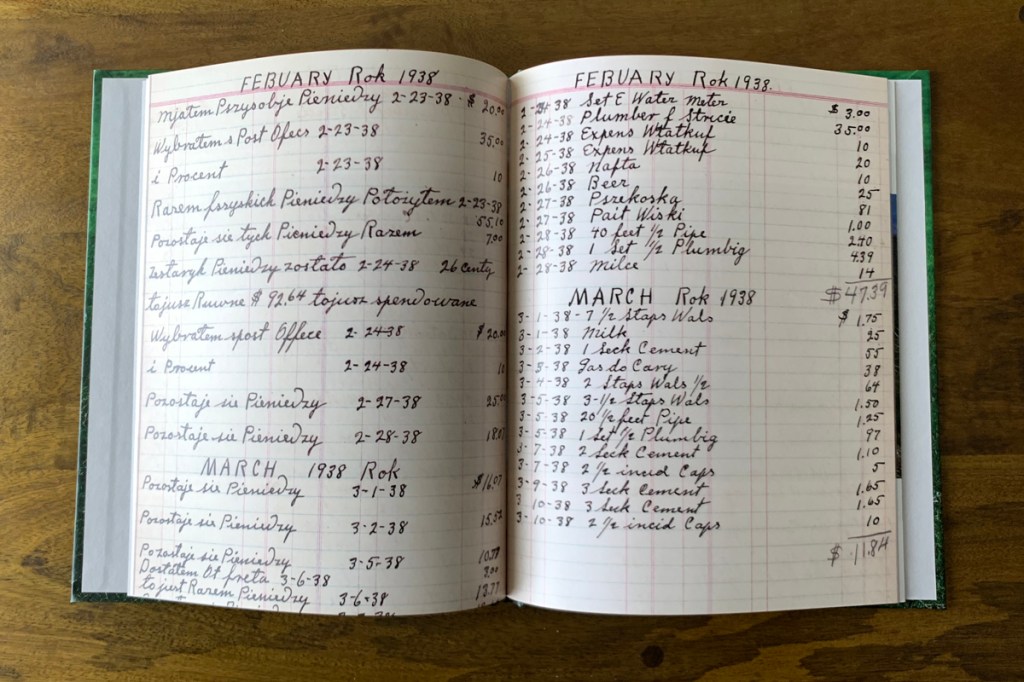 FEBUARY Rok 1938
Mjatem Pszysobje Pieniedzy 2-23-38 - $ 20.00
Wybratem s Post Ofecs 2-23-38 35.00
i Procent 2-23-38 10
Razem fszyskich Pieniedzy Potozytem 2-23-38
55.10
Pozostaje sie tych Pieniedzy Razem 7.00
zestaryk Pieniedzy zostato 2-24-38 26 centy
tojusz Ruwne $ 92.64 tojusz spendowane
Wybratem spost Offece 2-24-38 $ 20.00
i Procent 2-24-38
Pozostaje sie Pieniedzy 2-27-38 25.00
Pozostaje sie Pieniedzy 2-28-38
MARCH 1938 Rok
Pozostaje sie Pieniedzy 3-1-38 $16.07
Pozostaje sie Pieniedzy 3-2-38 15.52
Pozostaje sie Pieniedzy 3-5-38
Dostatem Ot freta 3-6-38 3.00
to jest Razem Pieniedzy 3-6-38 13.77
FEBUARY Rok 1938.
2-24-38 Set E Water Meter $ 3.00
2-24-38 Plumber f Stricie 35.00
2-24-38 Expens Wtatkuf 10
2-25-38 Expens Wtatkuf 20
2-26-38 Nafta 10
2-26-38 Beer 25
2-27-38 Pszekoska 81
2-27-38 Pait Wiski 1.00
2-28-38 40 feet 1/2 Pipe 2.40
2-28-38 1 Set 1/2 Plumbig 4.39
2-28-38 Milce 14
$ 47.39
MARCH Rok 1938
3-1-38 - 7 1/2 Staps Wals $ 1.75
3-1-38 Milk 25
3-2-38 1 Seck Cement 55
3-3-38 Gas do Cary 38
3-4-38 2 Staps Wals 1/2 64
3-5-38 3-1/2 Staps Wals 1.50
3-5-38 20 1/2 feet Pipe 1.25
3-5-38 1 Set 1/2 Plumbig 97
3-7-38 2 Seck Cement 1.10
3-7-38 2 1/2 incud Caps 5
3-9-38 3 Seck Cement 1.65
3-10-38 3 Seck Cement 1.65
3-10-38 2 1/2 incid Caps 10
$ 11.84